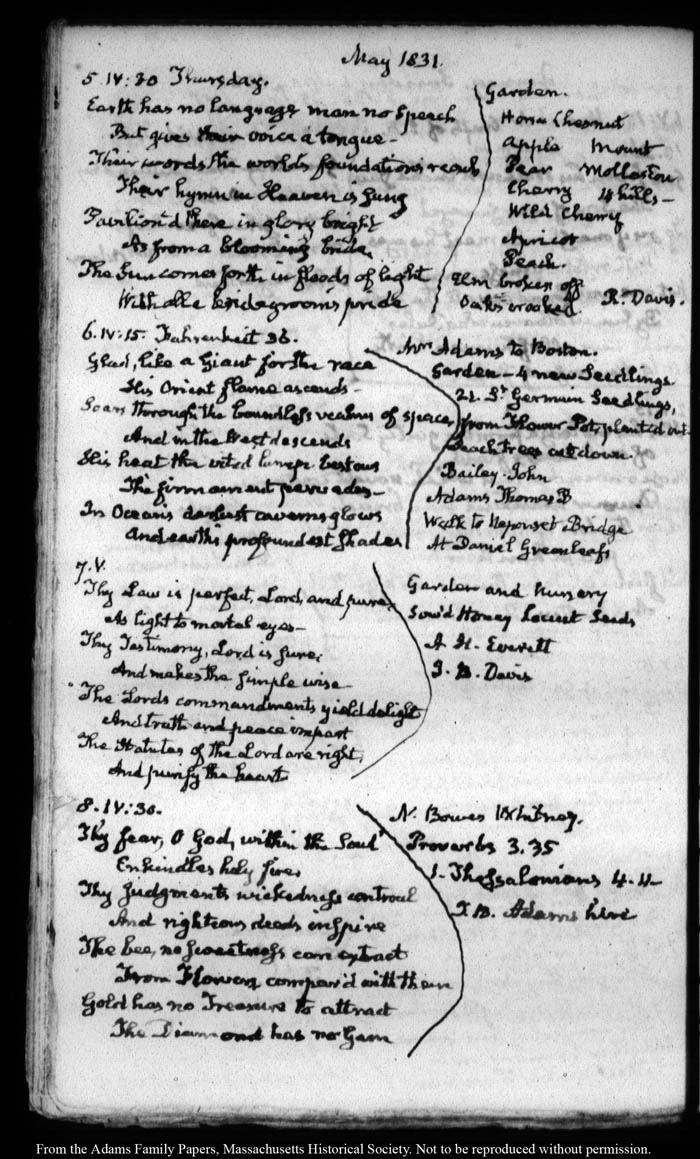 May 1831.
5. IV: 30 Thursday.
Earth has no language, man no Speech
But gives their voice a tongue-
Their words the world's foundations reach
Their hymn in Heaven is sung
Pavilion'd there in glory bright
As from a blooming bride,
The Sun comes forth in floods of light
With all a bridegroom's pride
Garden.
Horse Chesnut
Apple Mount
Pear Mollaston
Cherry 4 hills-
Wild Cherry
Apricot
Peach.
Elm broken off
Oaks crooked. R. Davis.
6. IV: 15. Fahrenheit 36.
Glad, like a Giant for the race
His Orient flame ascends-
Soars through the boundless realms of space
And in the West descends
His heat the vital lamp bestows
The firmament pervades-
In Ocean's darkest caverns glows
And earth's profoundest Shades
Mrs Adams to Boston.
Garden- 4 new Seedlings
21. St. Germain Seedlings,
from Flower Pot, planted out
Peach trees cut down.
Bailey. John
Adams Thomas B
Walk to Neponset Bridge
At Daniel Greenleaf's
7. V.
Thy Law is perfect, Lord, and pure
As light to mortal eyes-
Thy Testimony, Lord is Sure,
And makes the simple wise
The Lords commandments yield delight
And truth and peace impart
The Statutes of the Lord are right,
And purify the heart
Garden and Nursery
Sow'd Honey Locust Seeds
A. H. Everett
J. B. Davis
8. IV: 30.
Thy fear, O God, within the Soul
Enkindles holy fire
Thy Judgments wickedness controul
And righteous deeds inspire
The bee, no Sweetness can extract
From Flowers compar'd with them
Gold has no Treasure to attract
The Diamond has no Gem
N. Bowes Whitney.
Proverbs 3.35
1. Thessalonians 4.4-
T. B. Adams here
From the Adams Family Papers, Massachusetts Historical Society. Not to be reproduced without permission.